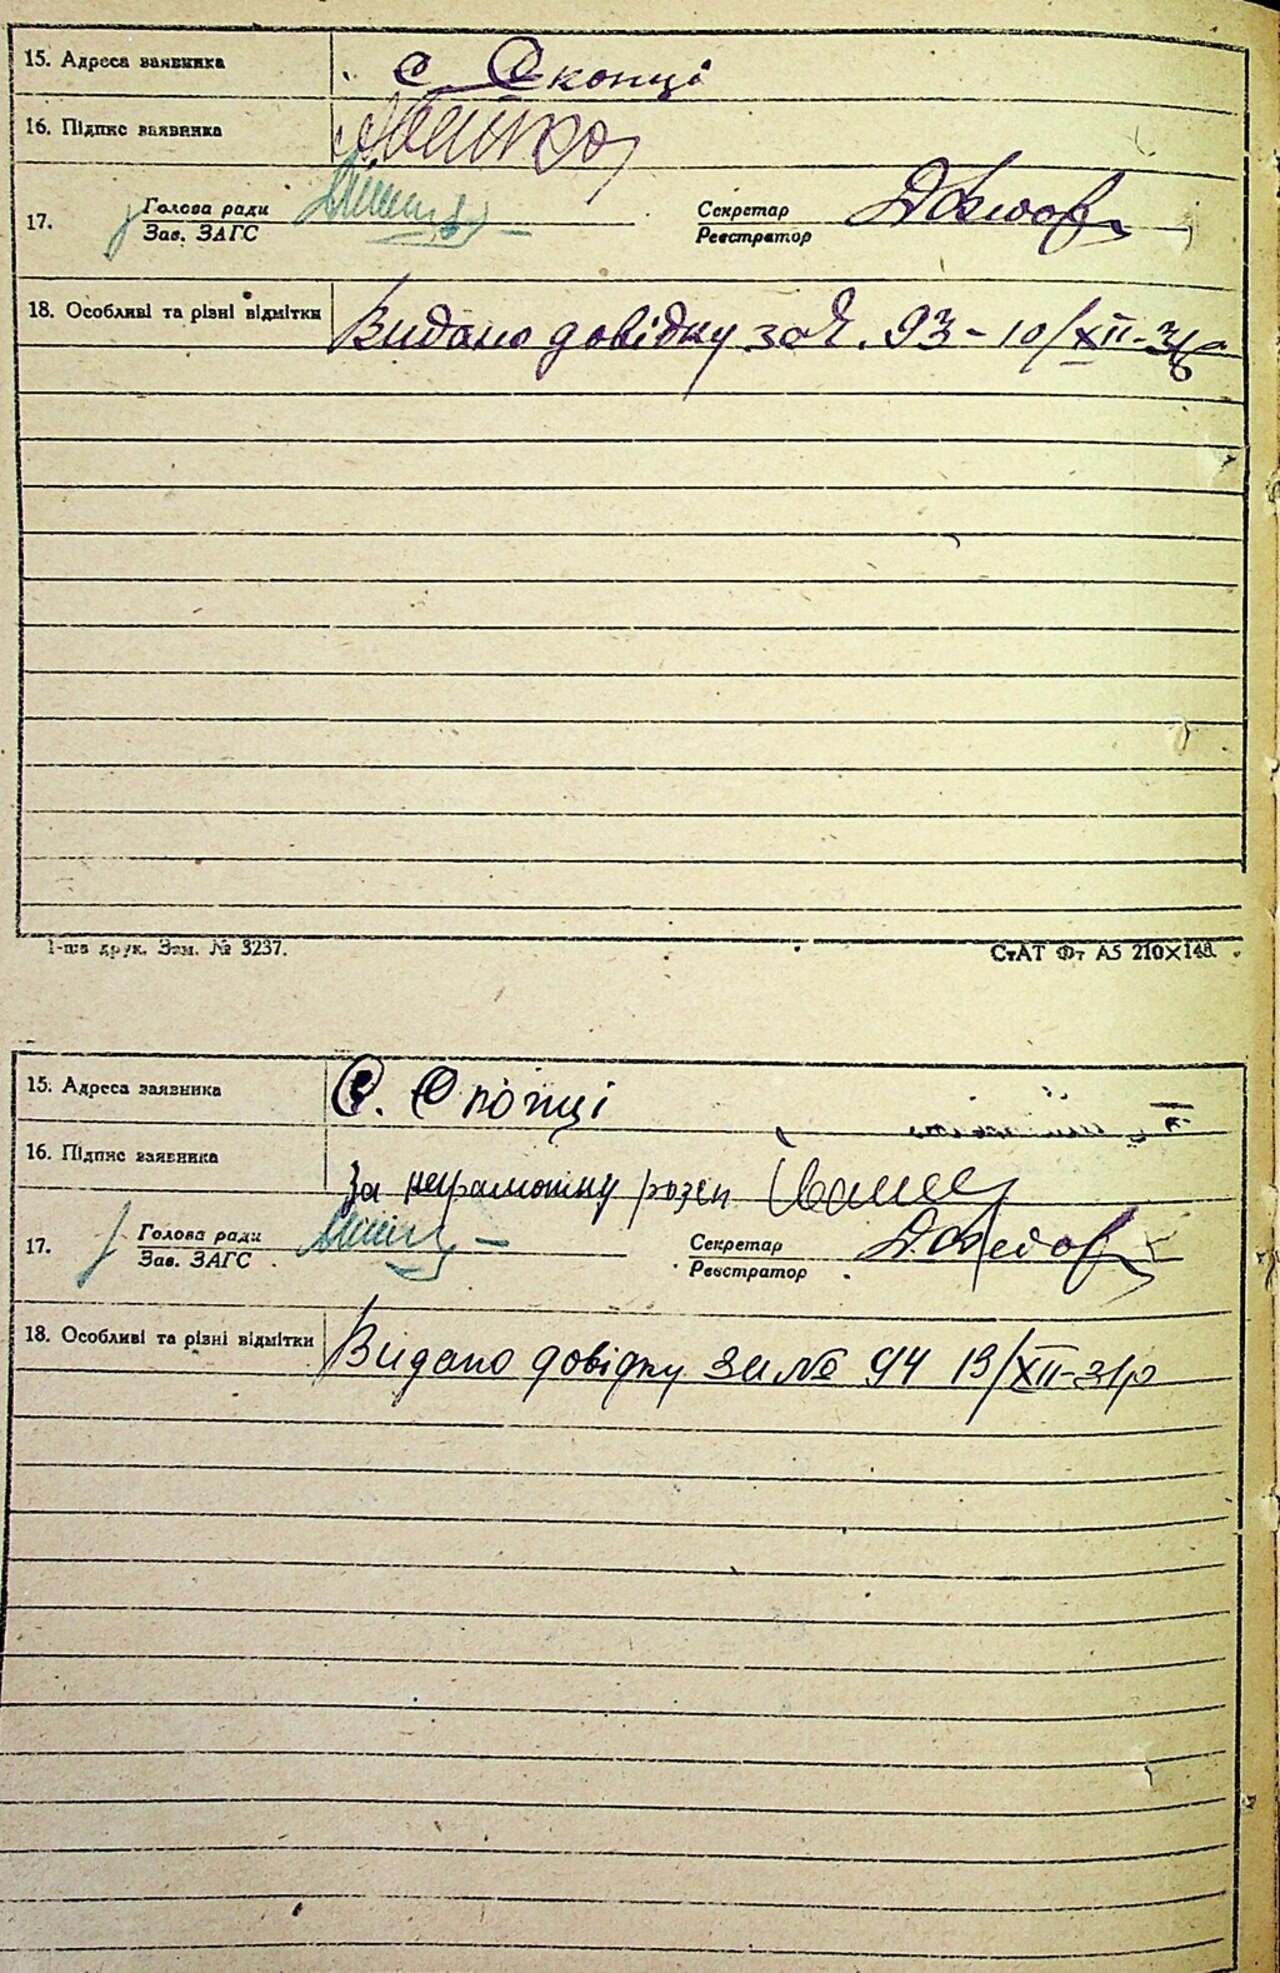 15. Адреса заявника с Скопці
16. Підпис заявника
17. Голова ради Зав. ЗАГС Секретар Реєстратор
18. Особливі та різні відмітки Видано довідку за Ч. 93 - 10/XII-31р
1-ша друк. Зам. № 3237. СтАТ Фт А5 210×148.
15. Адреса заявника С. Скопці
16. Підпис заявника За неграмотну розп
17. Голова ради Зав. ЗАГС Секретар Реєстратор
18. Особливі та різні відмітки Видано довідку за № 94 13/XII-31р